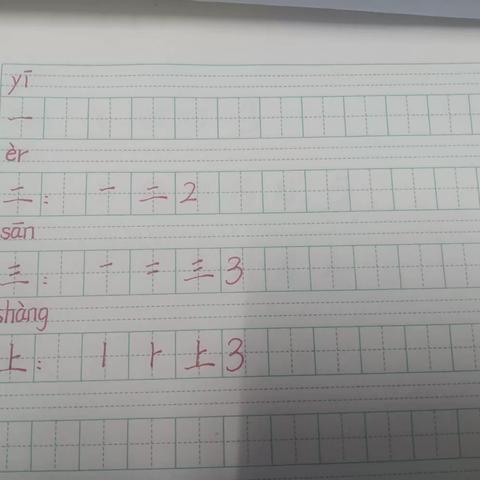 yī
一
èr
二： 一 二 2
sān
三： 一 二 三 3
shàng
上： 丨 ⺊ 上 3